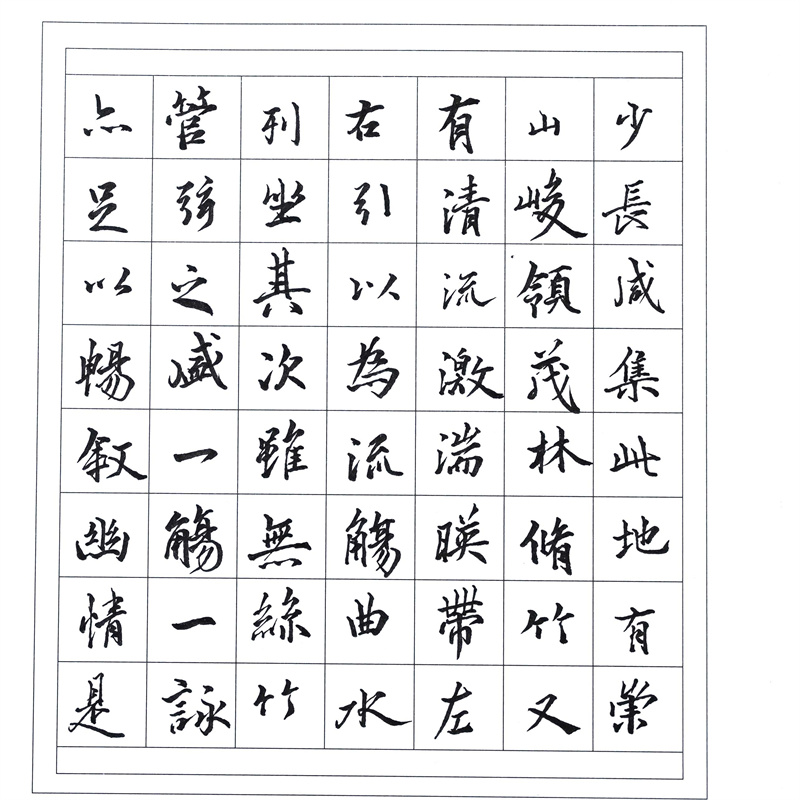 少長咸集此地有崇
山峻領茂林脩竹又
有清流激湍暎帶左
右引以為流觴曲水
列坐其次雖無絲竹
管弦之盛一觴一詠
亦足以暢叙幽情是